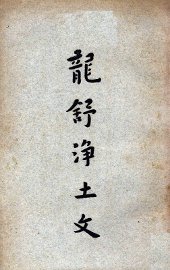 龍舒淨土文